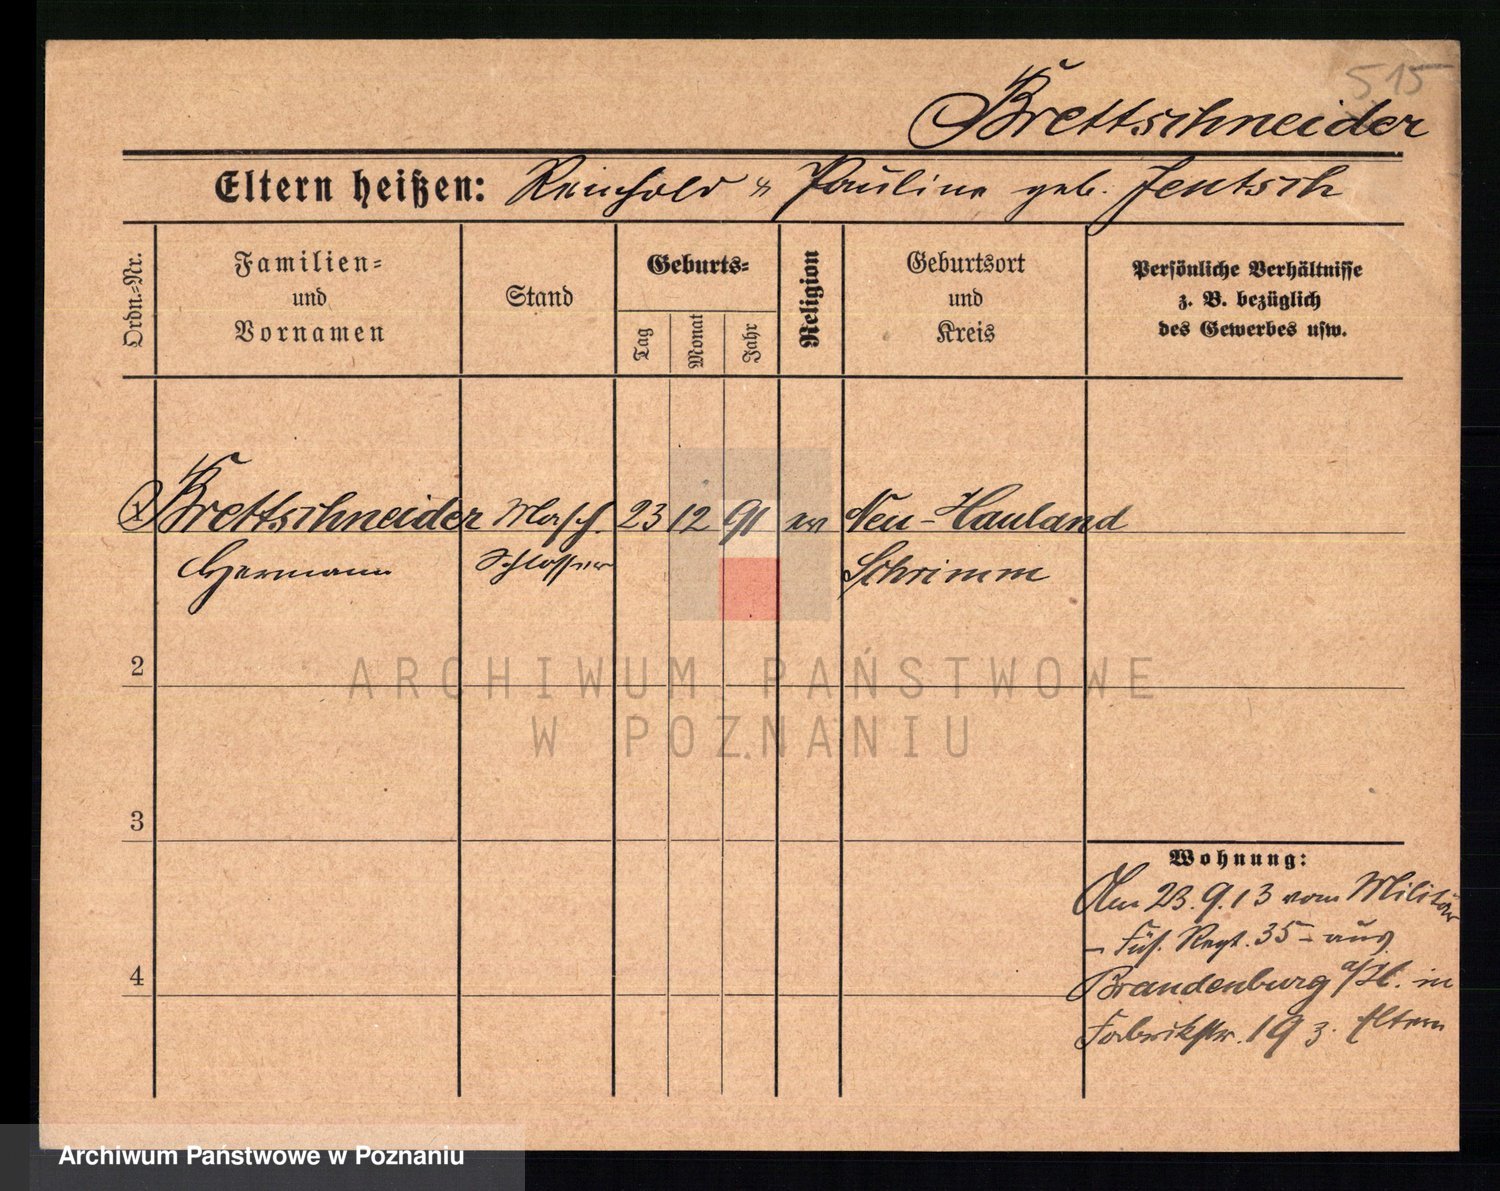 515
Brettschneider
Eltern heißen: Reinhold & Pauline geb. Jentsch
Ordn.-Nr.
Familien-
und
Vornamen
Stand
Geburts-
Tag
Monat
Jahr
Religion
Geburtsort
und
Kreis
Persönliche Verhältnisse
z. B. bezüglich
des Gewerbes usw.
1 Brettschneider Masch. 23 12 91 ev Neu-Hauland
Hermann Schlosser Schrimm
2
ARCHIWUM PAŃSTWOWE
W POZNANIU
3
Wohnung:
Am 23.9.13 vom Militär
- Füs. Regt. 35 - aus
4
Brandenburg a/H. in
Fabrikstr. 19 z. Eltern
Archiwum Państwowe w Poznaniu